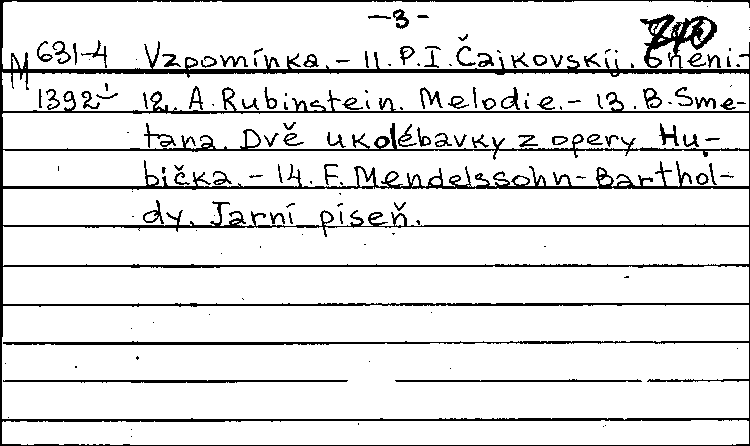 -3-
740
M 631-4 Vzpomínka.- 11. P.I. Čajkovskij. Snění.-
1392 12. A. Rubinstein. Melodie.- 13. B. Sme-
tana. Dvě ukolébavky z opery Hu-
bička.- 14. F. Mendelssohn-Barthol-
dy. Jarní píseň.